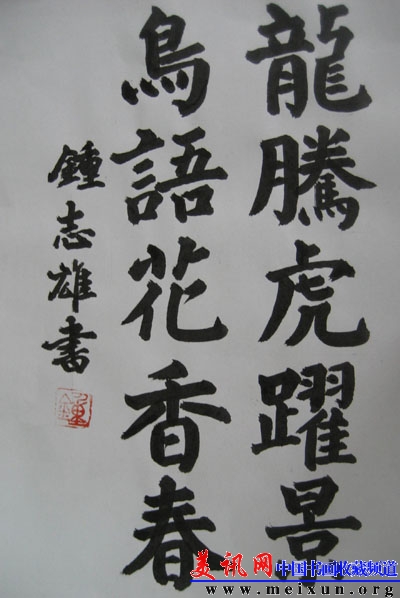 龍騰虎躍景
鳥語花香春
鍾志雄書
鍾
美讯网 中国书画收藏频道
www.meixun.org